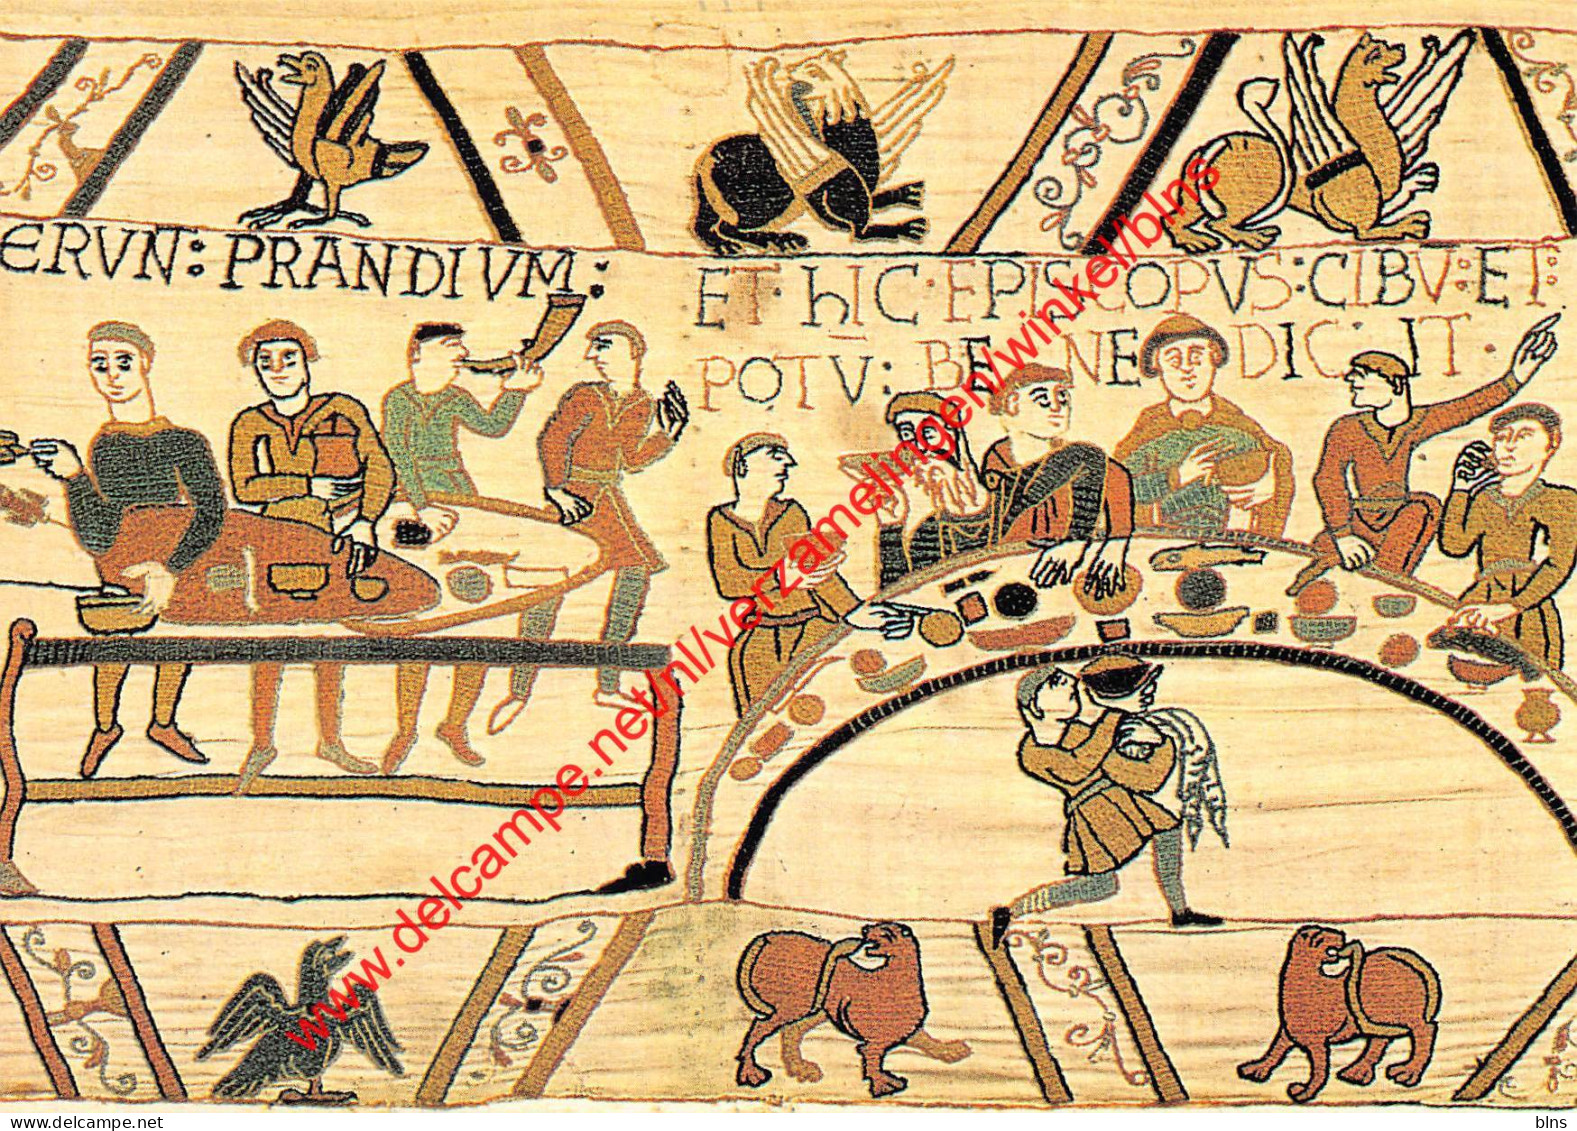 ERVN: PRANDIVM:
ET·hIC·EPISCOPVS:CIBV:ET:
POTV: BENEDIC·IT·
www.delcampe.net/nl/verzamelingen/winkel/blns
www.delcampe.net
blns